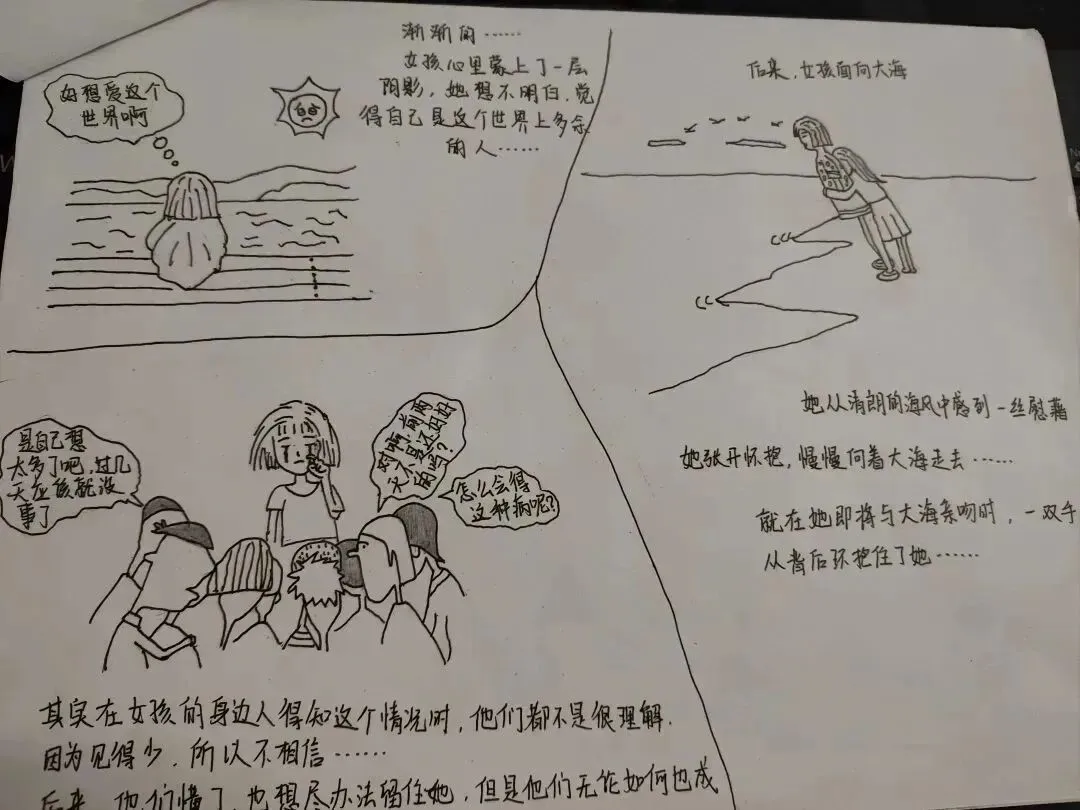 好想爱这个
世界啊
渐渐的……
女孩心里蒙上了一层
阴影，她想不明白，觉
得自己是这个世界上多余
的人……
后来，女孩面向大海
她从清朗的海风中感到一丝慰藉
她张开怀抱，慢慢向着大海走去……
就在她即将与大海亲吻时，一双手
从背后环抱住了她……
是自己想
太多了吧，过几
天应该就没
事了
前两
天不是还好好
的吗？
怎么会得
这种病呢？
其实在女孩的身边人得知这个情况时，他们都不是很理解.
因为见得少，所以不相信……
后来，他们懂了，也想尽办法留住她，但是他们无论如何也成